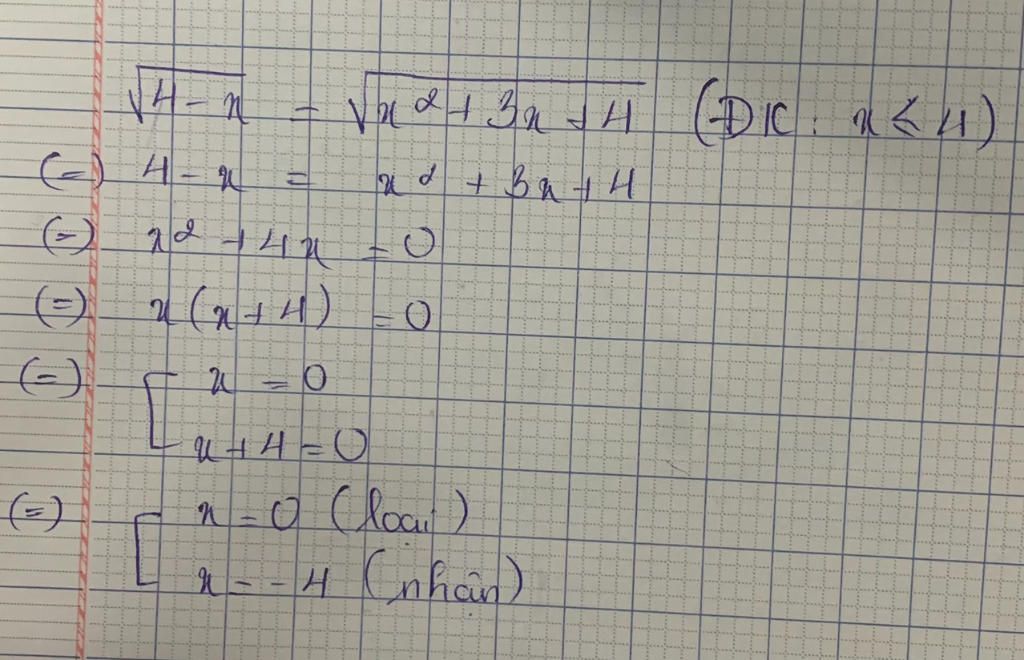 √(4-x) = √(x²+3x+4) (ĐK: x ≤ 4)
(=) 4-x = x²+3x+4
(=) x²+4x = 0
(=) x(x+4) = 0
(=) [ x = 0
x+4 = 0
(=) [ x = 0 (loại)
x = -4 (nhận)